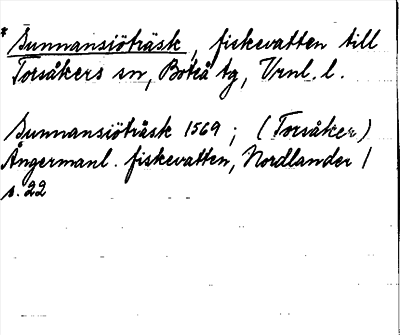 * Sunnansiöträsk, fiskevatten till
Torsåkers sn, Boteå tg, Vrnl. l.
Sunnansiöträsk 1569; (Torsåker)
Ångermanl. fiskevatten, Nordlander 1
s. 22